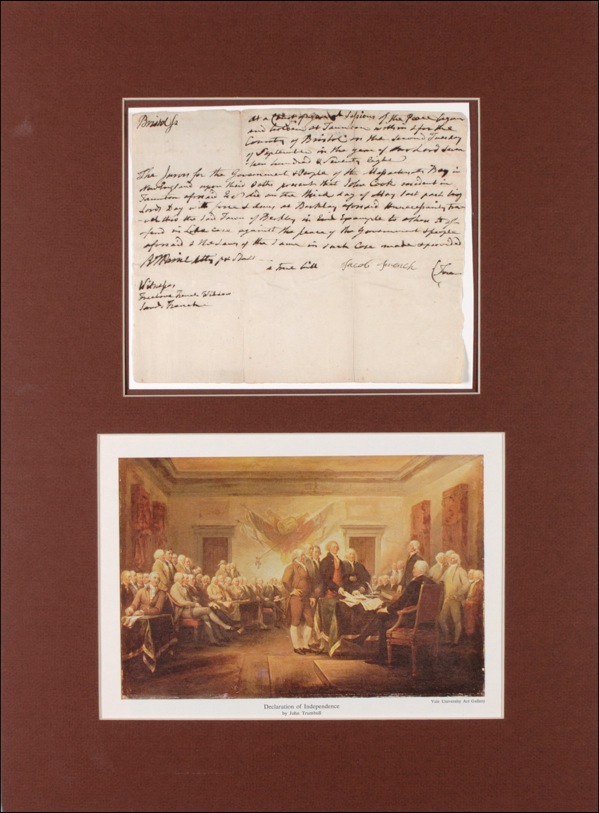 Bristol ss
At a Court of General Sessions of the Peace begun
and holden at Taunton within & for the
County of Bristol on the second Tuesday
of September in the year of our Lord Seven
hundred & Seventy Eight
The Jurors for the Government & People of the Massachusetts Bay in
New England upon their Oaths present that John Cook resident in
Taunton aforesaid did on the third day of May last past being
Lords Day with force & Arms at Berkley aforesaid Unnecessarily
the said Town of Berkley in Evil Example to others to of-
fend in Like case against the peace of the Government & people
aforesaid & the Laws of the same in such Case made & provided
a true bill
Jacob
Witnesses
Declaration of Independence
by John Trumbull
Yale University Art Gallery